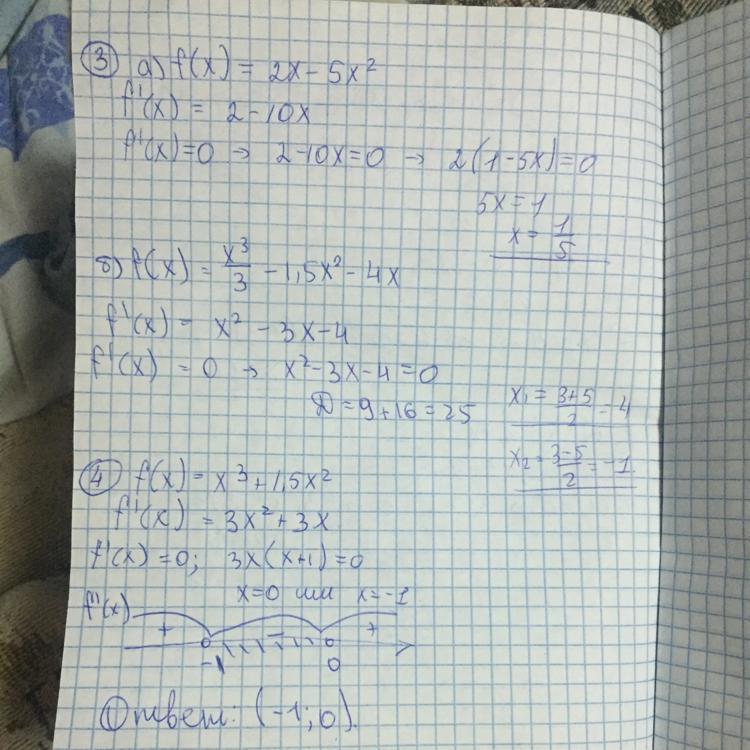 ③ а) f(x) = 2x - 5x²
f'(x) = 2 - 10x
f'(x) = 0 → 2 - 10x = 0 → 2(1 - 5x) = 0
5x = 1
x = 1/5
б) f(x) = x³/3 - 1,5x² - 4x
f'(x) = x² - 3x - 4
f'(x) = 0 → x² - 3x - 4 = 0
D = 9 + 16 = 25
x₁ = (3+5)/2 = 4
x₂ = (3-5)/2 = -1
④ f(x) = x³ + 1,5x²
f'(x) = 3x² + 3x
f'(x) = 0; 3x(x+1) = 0
x = 0 или x = -1
f'(x)
+ - +
-1 0
Ответ: (-1; 0).